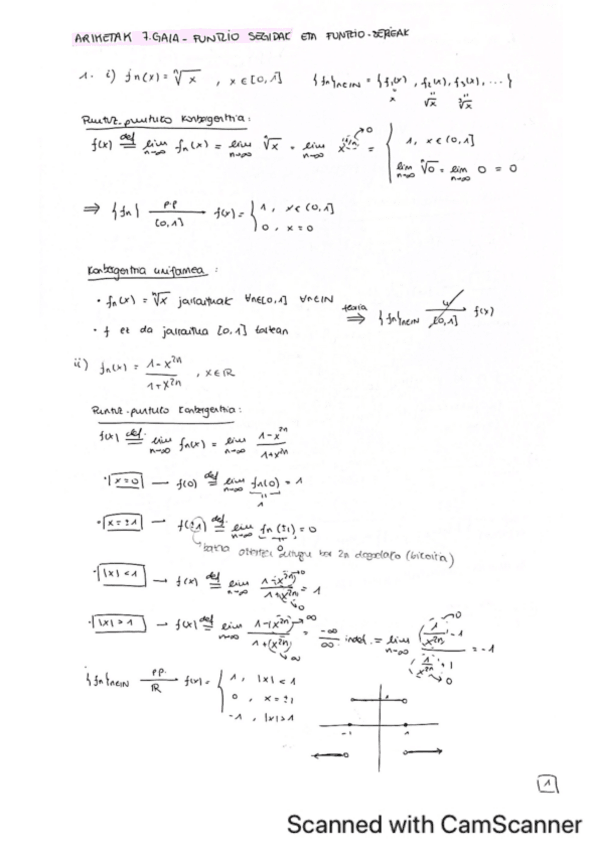 ARIKETAK 7.GAIA - FUNTZIO SEGIDAK ETA FUNTZIO-SERIEAK
1. i) fn(x) = ⁿ√x , x ∈ [0,1] {fn}n∈ℕ = {f₁(x), f₂(x), f₃(x), ...}
x √x ³√x
Puntuz-puntuko konbergentzia:
f(x) def= lim n→∞ fn(x) = lim n→∞ ⁿ√x = lim n→∞ x^(1/n)→0 = { 1, x ∈ (0,1]
lim n→∞ ⁿ√0 = lim n→∞ 0 = 0
⇒ {fn} p.p. [0,1] → f(x) = { 1, x ∈ (0,1]
0, x = 0
Konbergentzia uniformea:
• fn(x) = ⁿ√x jarraituak ∀x∈[0,1] ∀n∈ℕ teoria ⇒ {fn}n∈ℕ u [0,1] f(x)
• f ez da jarraitua [0,1] tartean
ii) fn(x) = (1-x²ⁿ)/(1+x²ⁿ) , x∈ℝ
Puntuz-puntuko konbergentzia:
f(x) def= lim n→∞ fn(x) = lim n→∞ (1-x²ⁿ)/(1+x²ⁿ)
• x=0 → f(0) def= lim n→∞ fn(0) = 1
1
• x=±1 → f(±1) def= lim n→∞ fn(±1) = 0
0
2n (bikoitia)
• |x|<1 → f(x) def= lim n→∞ (1-(x²ⁿ)→0)/(1+(x²ⁿ)→0) = 1
• |x|>1 → f(x) def= lim n→∞ (1-(x²ⁿ)→∞)/(1+(x²ⁿ)→∞) = -∞/∞ indet. = lim n→∞ (1/x²ⁿ→0 - 1)/(1/x²ⁿ→0 + 1) = -1
{fn}n∈ℕ p.p. ℝ → f(x) = { 1, |x|<1
0, x=±1
-1, |x|>1
-1 1
1
Scanned with CamScanner